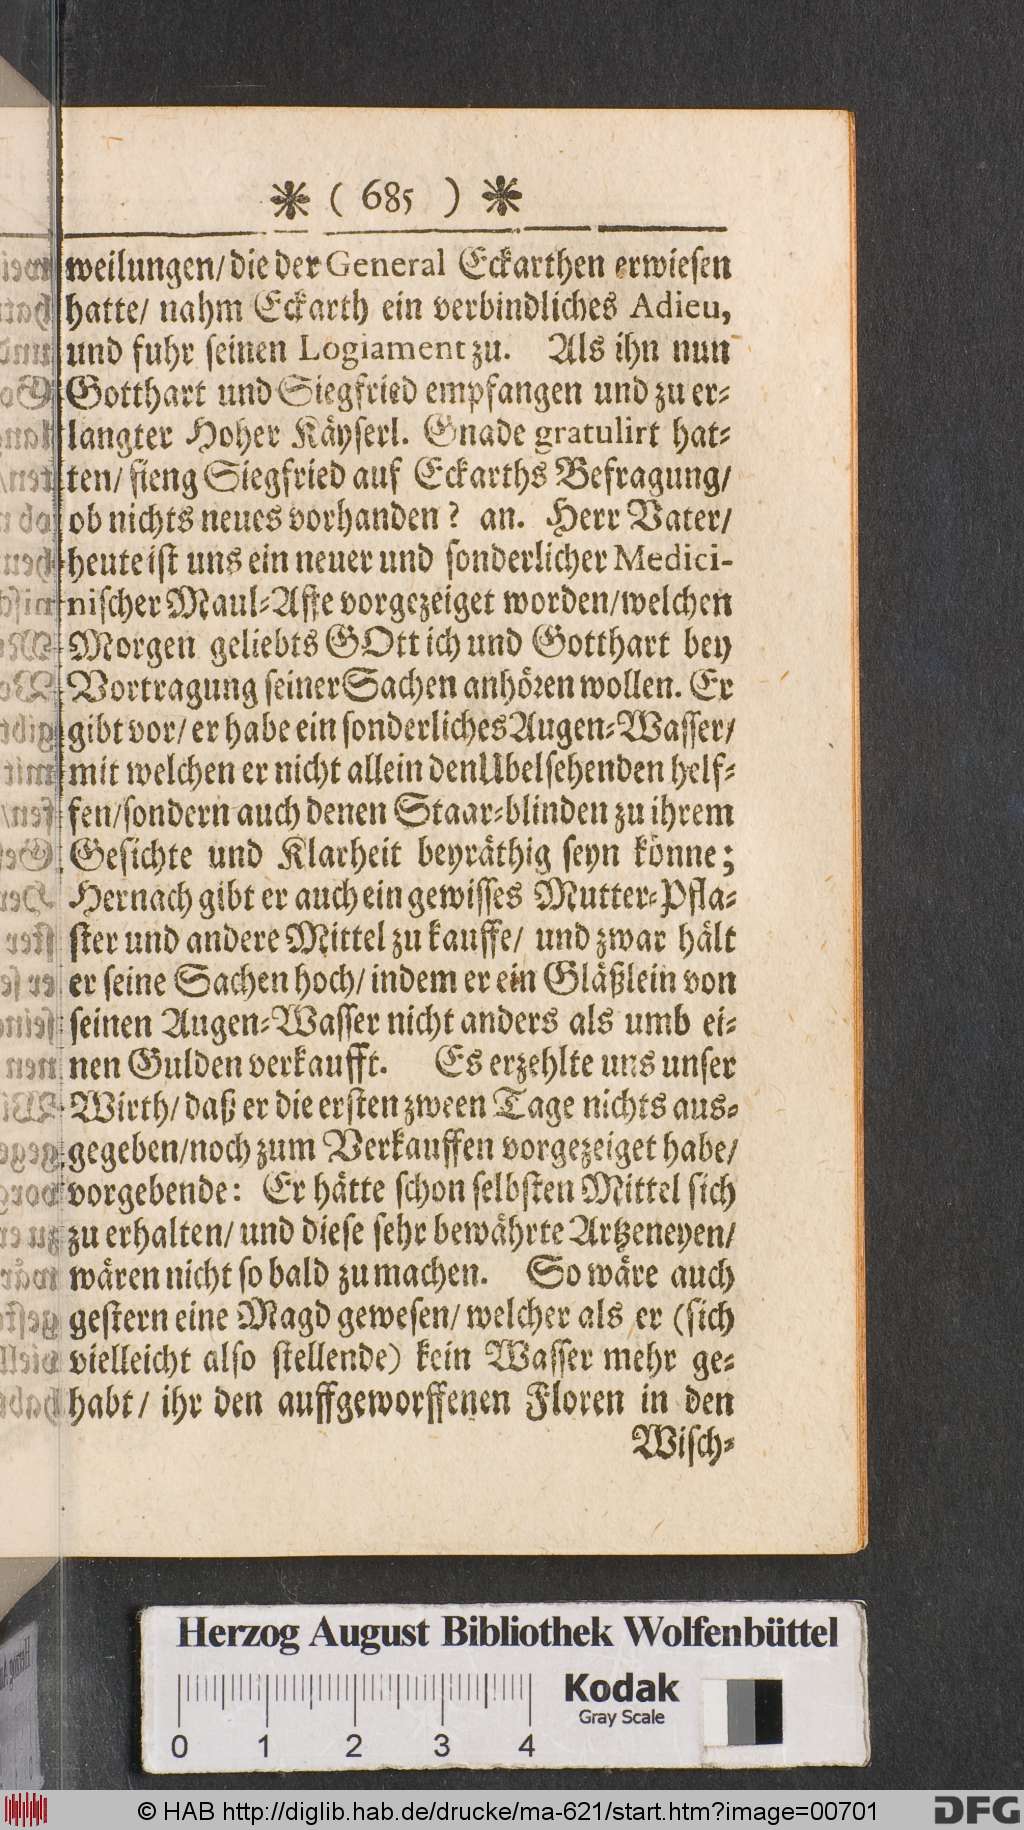 * ( 685 ) *
weilungen/ die der General Eckarthen erwiesen
hatte/ nahm Eckarth ein verbindliches Adieu,
und fuhr seinen Logiament zu. Als ihn nun
Gotthart und Siegfried empfangen und zu er-
langter Hoher Käyserl. Gnade gratulirt hat-
ten/ fieng Siegfried auf Eckarths Befragung/
ob nichts neues vorhanden? an. Herr Vater/
heute ist uns ein neuer und sonderlicher Medici-
nischer Maul-Affe vorgezeiget worden/ welchen
Morgen geliebts GOtt ich und Gotthart bey
Vortragung seiner Sachen anhören wollen. Er
gibt vor/ er habe ein sonderliches Augen-Wasser/
mit welchen er nicht allein den Ubelsehenden helf-
fen/ sondern auch denen Staar-blinden zu ihrem
Gesichte und Klarheit beyräthig seyn könne;
Hernach gibt er auch ein gewisses Mutter-Pfla-
ster und andere Mittel zu kauffe/ und zwar hält
er seine Sachen hoch/ indem er ein Gläßlein von
seinen Augen-Wasser nicht anders als umb ei-
nen Gulden verkaufft. Es erzehlte uns unser
Wirth/ daß er die ersten zween Tage nichts aus-
gegeben/ noch zum Verkauffen vorgezeiget habe/
vorgebende: Er hätte schon selbsten Mittel sich
zu erhalten/ und diese sehr bewährte Artzeneyen/
wären nicht so bald zu machen. So wäre auch
gestern eine Magd gewesen/ welcher als er (sich
vielleicht also stellende) kein Wasser mehr ge-
habt/ ihr den auffgeworffenen Floren in den
Wisch-
Herzog August Bibliothek Wolfenbüttel
Kodak
Gray Scale
0 1 2 3 4
© HAB http://diglib.hab.de/drucke/ma-621/start.htm?image=00701
DFG